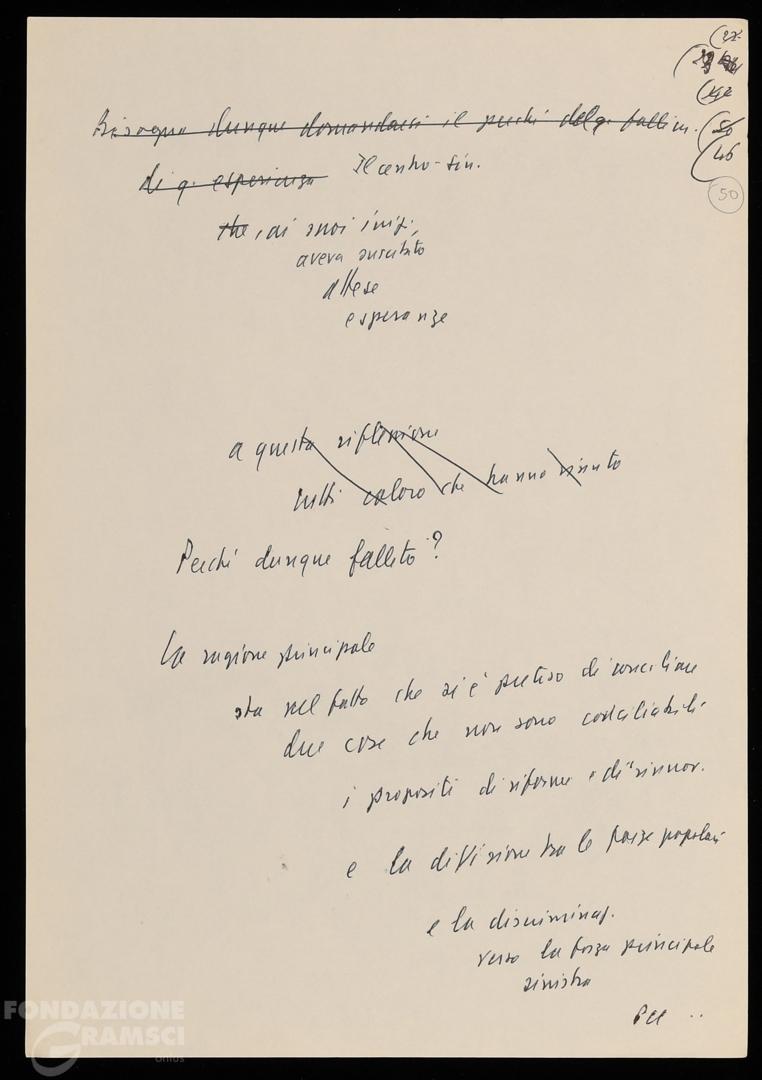 (27
(192
(50
(46
50
Bisogna dunque domandarsi il perché del q. fallim.
di q. esperienza Il centro-sin.
che, ai suoi iniz.,
aveva suscitato
attese
esperanze
a questa riflessione
tutti coloro che hanno vissuto
Perché dunque fallito?
La ragione principale
sta nel fatto che si è preteso di conciliare
due cose che non sono conciliabili
i propositi di riforme e di "rinnov.
e la divisione tra le forze popolari
e la discriminaz.
verso la forza principale
sinistra
PCI ..
FONDAZIONE
GRAMSCI
onlus